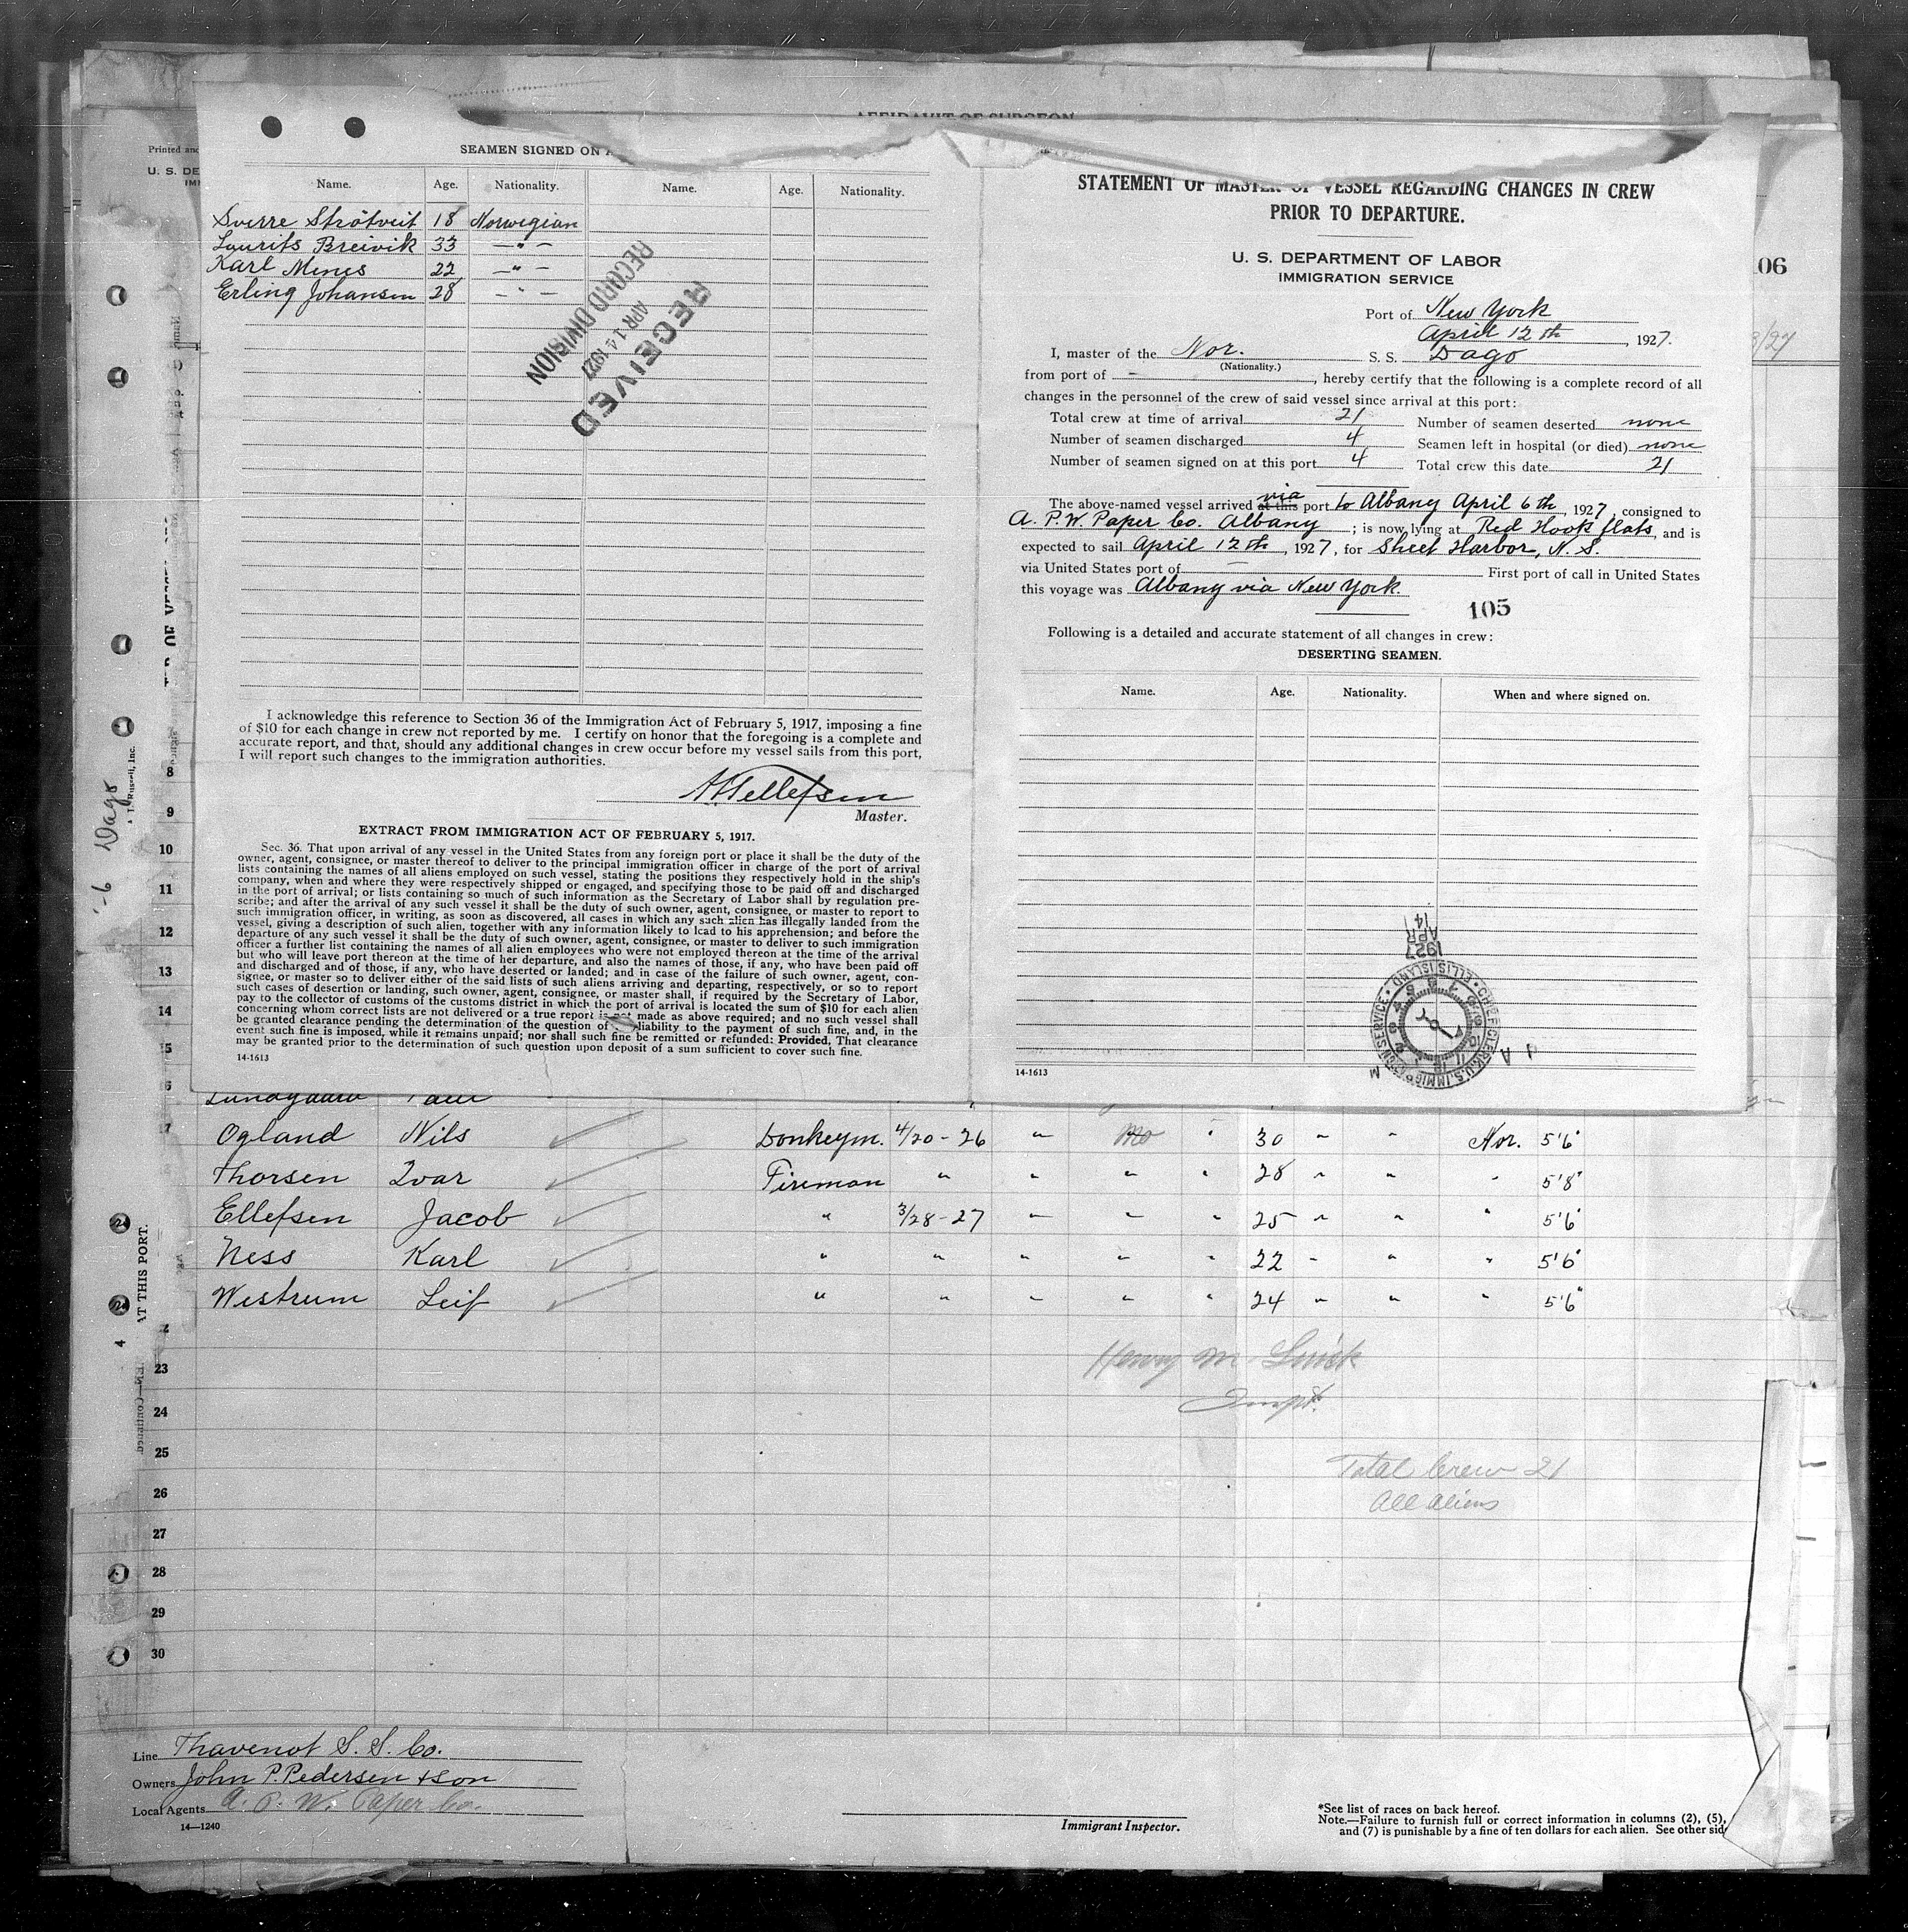 AFFIDAVIT OF SURGEON
Printed and
U. S. DE
SEAMEN SIGNED ON A
Name. Age. Nationality. Name. Age. Nationality.
Sverre Strötveit 18 Norwegian
Laurits Breivik 33 — " —
Karl Menes 22 — " —
Erling Johansen 28 — " —
RECEIVED
APR 14 1927
RECORD DIVISION
I acknowledge this reference to Section 36 of the Immigration Act of February 5, 1917, imposing a fine
of $10 for each change in crew not reported by me. I certify on honor that the foregoing is a complete and
accurate report, and that, should any additional changes in crew occur before my vessel sails from this port,
I will report such changes to the immigration authorities.
Tellefsen
Master.
EXTRACT FROM IMMIGRATION ACT OF FEBRUARY 5, 1917.
Sec. 36. That upon arrival of any vessel in the United States from any foreign port or place it shall be the duty of the
owner, agent, consignee, or master thereof to deliver to the principal immigration officer in charge of the port of arrival
lists containing the names of all aliens employed on such vessel, stating the positions they respectively hold in the ship's
company, when and where they were respectively shipped or engaged, and specifying those to be paid off and discharged
in the port of arrival; or lists containing so much of such information as the Secretary of Labor shall by regulation pre-
scribe; and after the arrival of any such vessel it shall be the duty of such owner, agent, consignee, or master to report to
such immigration officer, in writing, as soon as discovered, all cases in which any such alien has illegally landed from the
vessel, giving a description of such alien, together with any information likely to lead to his apprehension; and before the
departure of any such vessel it shall be the duty of such owner, agent, consignee, or master to deliver to such immigration
officer a further list containing the names of all alien employees who were not employed thereon at the time of the arrival
but who will leave port thereon at the time of her departure, and also the names of those, if any, who have been paid off
and discharged and of those, if any, who have deserted or landed; and in case of the failure of such owner, agent, con-
signee, or master so to deliver either of the said lists of such aliens arriving and departing, respectively, or so to report
such cases of desertion or landing, such owner, agent, consignee, or master shall, if required by the Secretary of Labor,
pay to the collector of customs of the customs district in which the port of arrival is located the sum of $10 for each alien
concerning whom correct lists are not delivered or a true report is not made as above required; and no such vessel shall
be granted clearance pending the determination of the question of liability to the payment of such fine, and, in the
event such fine is imposed, while it remains unpaid; nor shall such fine be remitted or refunded: Provided, That clearance
may be granted prior to the determination of such question upon deposit of a sum sufficient to cover such fine.
14-1613
STATEMENT OF MASTER OF VESSEL REGARDING CHANGES IN CREW
PRIOR TO DEPARTURE.
U. S. DEPARTMENT OF LABOR
IMMIGRATION SERVICE
Port of New York
April 12th, 1927.
I, master of the Nor. S. S. Dago
(Nationality.)
from port of –, hereby certify that the following is a complete record of all
changes in the personnel of the crew of said vessel since arrival at this port:
Total crew at time of arrival 21 Number of seamen deserted none
Number of seamen discharged 4 Seamen left in hospital (or died) none
Number of seamen signed on at this port 4 Total crew this date 21
via
The above-named vessel arrived at this port to Albany April 6th, 1927, consigned to
A. P. W. Paper Co. Albany; is now lying at Red Hook flats, and is
expected to sail April 12th, 1927, for Sheet Harbor, N. S.
via United States port of — First port of call in United States
this voyage was Albany via New York.
105
Following is a detailed and accurate statement of all changes in crew:
DESERTING SEAMEN.
Name. Age. Nationality. When and where signed on.
1927 APR 14
CHIEF CLERK, U.S. IMMIGRATION SERVICE • ELLIS ISLAND •
14-1613
06
Dago
AT THIS PORT.
8
9
10
11
12
13
14
Ogland Nils Donkeym. 4/20-26 " " 30 " " Nor. 5'6"
Thorsen Ivar Fireman " " " " 28 " " " 5'8"
Ellefsen Jacob " 3/28-27 " " " 25 " " " 5'6"
Ness Karl " " " " " 22 " " " 5'6"
Westrum Leif " " " " " 24 " " " 5'6"
23
24
25
26
27
28
29
30
Total Crew 21
All aliens
Line Thavenot S. S. Co.
Owners John P. Pedersen & Son
Local Agents A. P. W. Paper Co.
14—1240
Immigrant Inspector.
*See list of races on back hereof.
Note.—Failure to furnish full or correct information in columns (2), (5),
and (7) is punishable by a fine of ten dollars for each alien. See other side